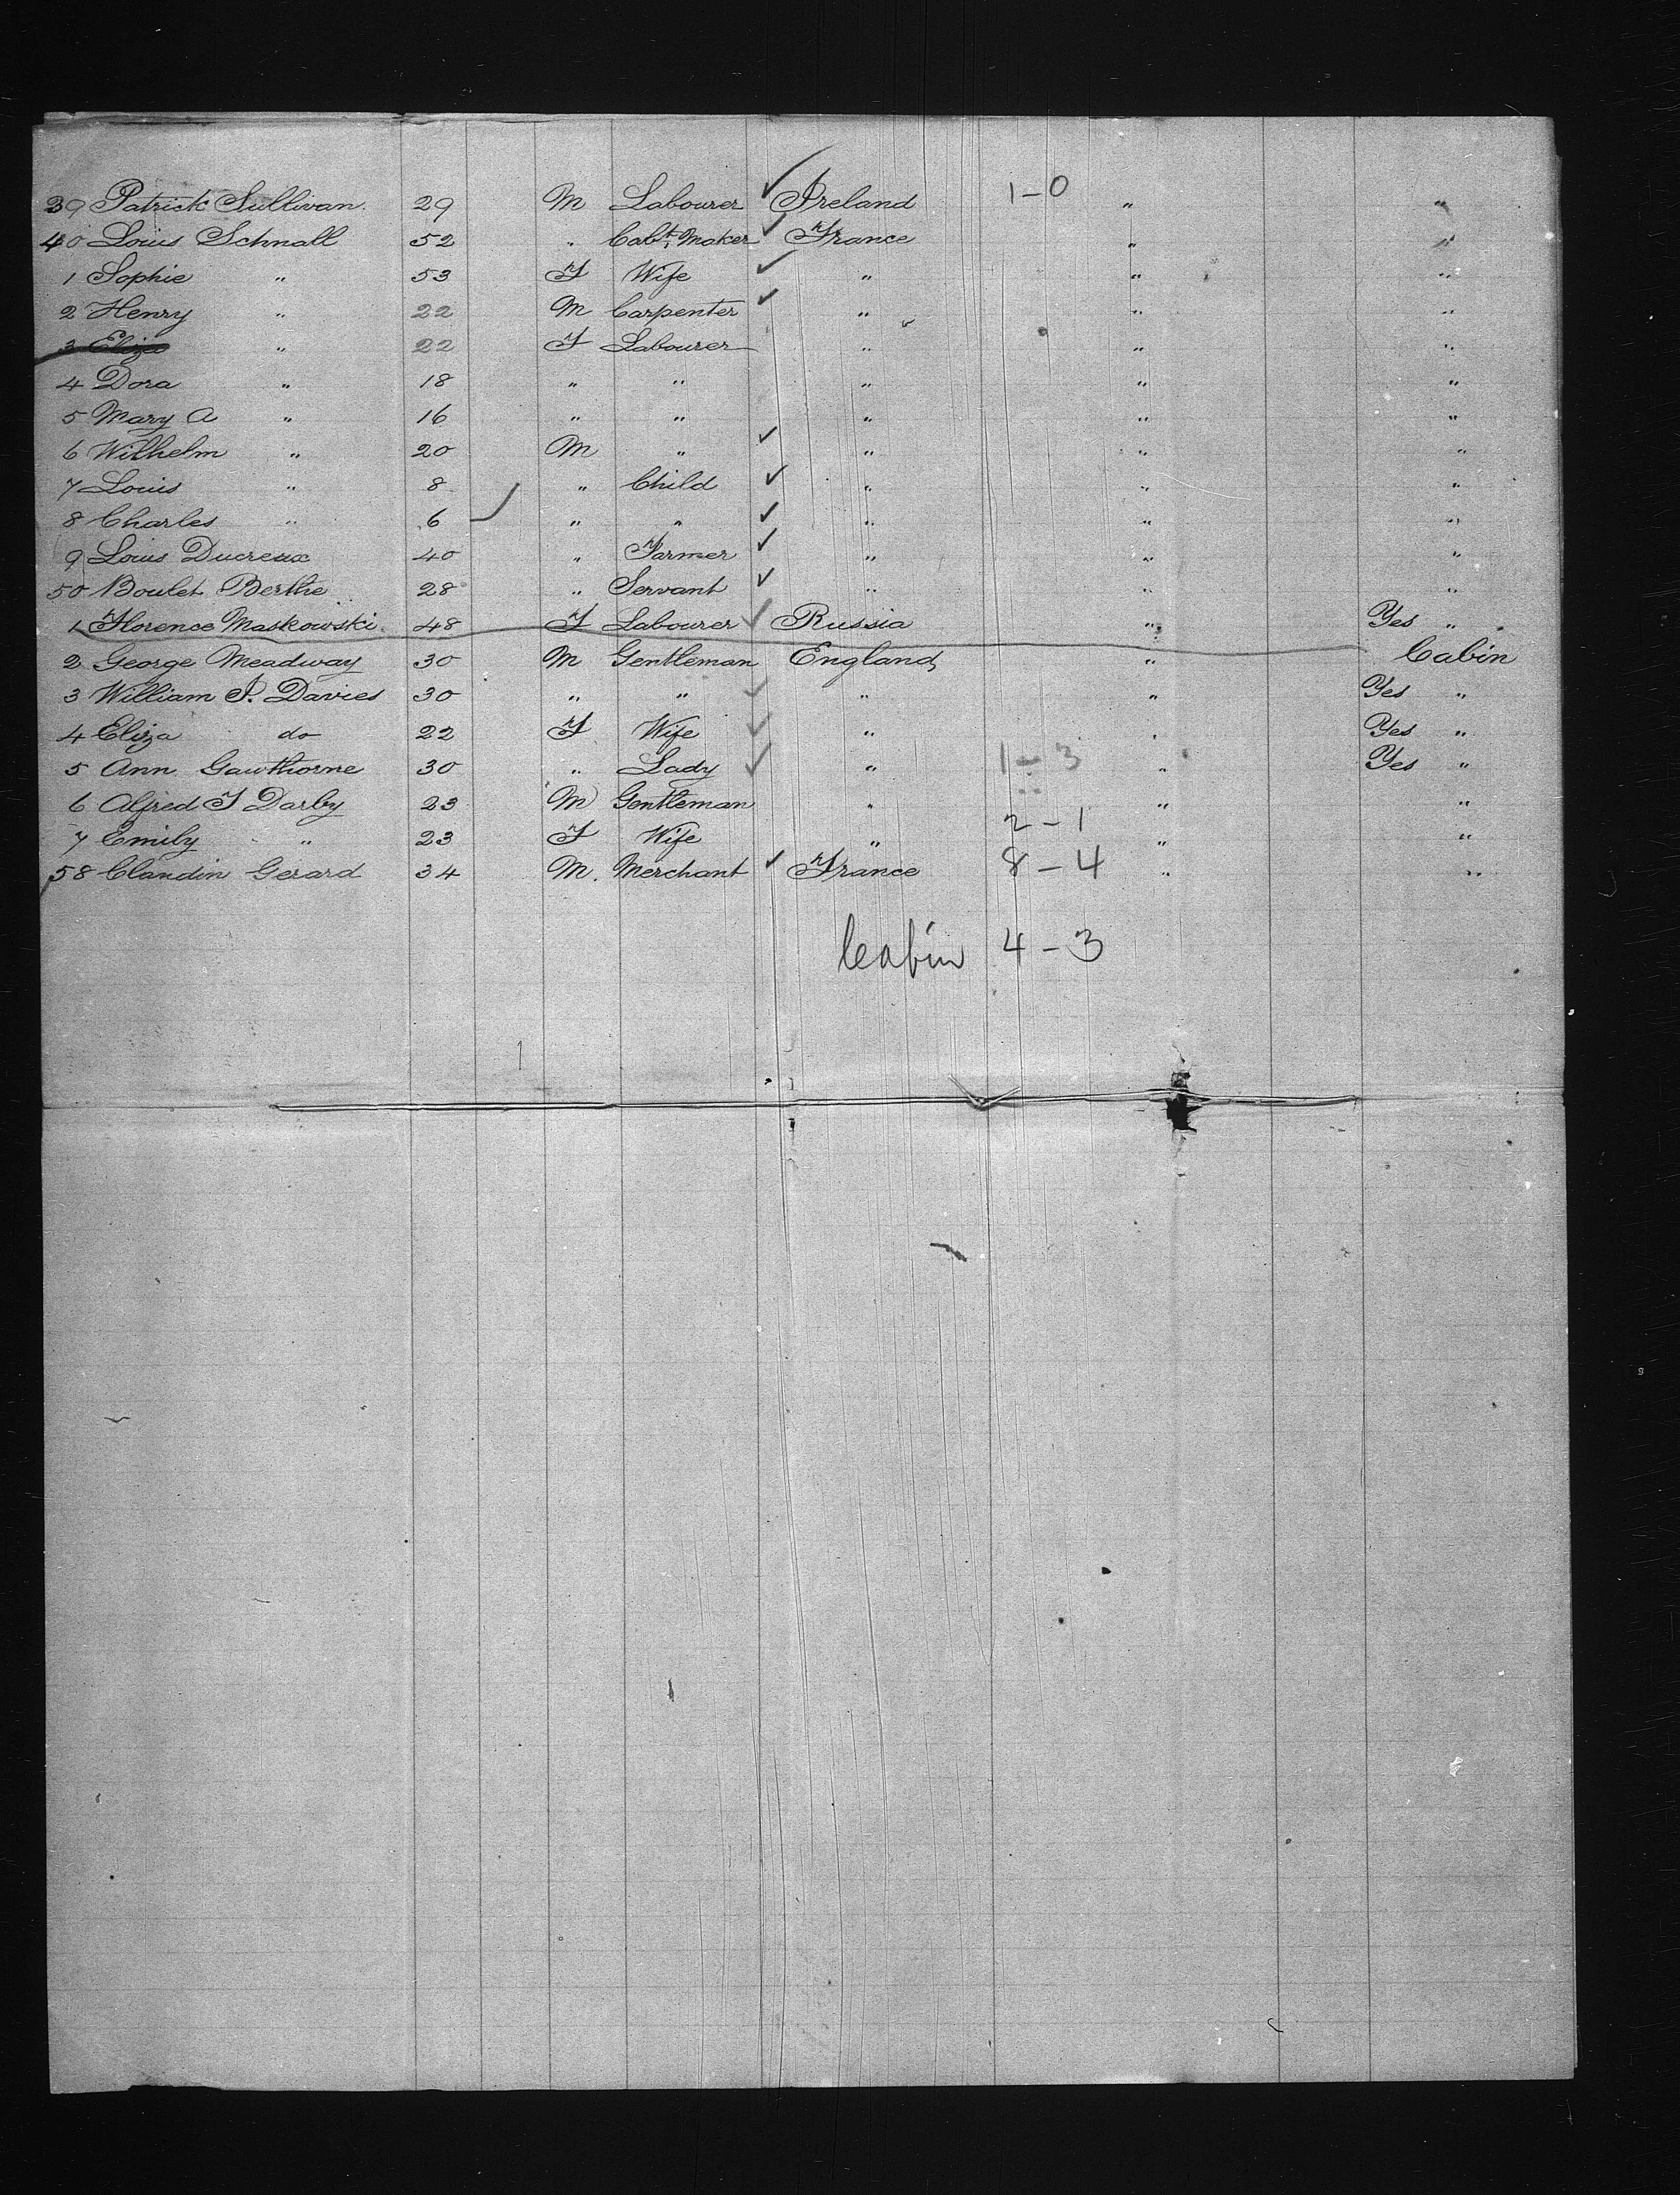 39 Patrick Sullivan. 29 M Labourer ✓ Ireland 1-0 " "
40 Louis Schnall 52 " Cabt. Maker ✓ France " "
1 Sophie " 53 F Wife ✓ " " "
2 Henry " 22 M Carpenter ✓ " " "
3 Eliza " 22 F Labourer " " "
4 Dora " 18 " " " " "
5 Mary A " 16 " " " " "
6 Wilhelm " 20 M " ✓ " " "
7 Louis " 8 " Child ✓ " " "
8 Charles " 6 " " ✓ " " "
9 Louis Ducreux 40 " Farmer ✓ " " "
50 Boulet Berthe 28 " Servant ✓ " " "
1 Florence Maskowski 48 F Labourer ✓ Russia " Yes "
2 George Meadway 30 M Gentleman England " Cabin
3 William P. Davies 30 " " ✓ " " Yes "
4 Eliza do 22 F Wife ✓ " " Yes "
5 Ann Gawthorne 30 " Lady ✓ " 1-3 " Yes "
6 Alfred F Darby 23 M Gentleman " " "
7 Emily " 23 F Wife " 2-1 " "
58 Claudin Gerard 34 M. Merchant ✓ France 8-4 " "
Cabin 4-3